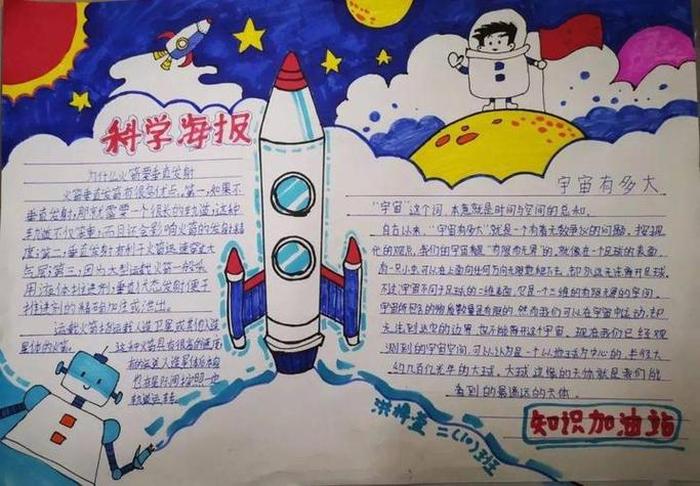 科学海报
为什么火箭要垂直发射
火箭垂直发箭有很多优点。第一,如果不
垂直发射,那就需要一个很长的轨道,这种
轨道不仅笨重,而且还会影响火箭的发射精
度;第二,垂直发射有利于火箭迅速穿过大
气层;第三,因为大型运载火箭一般采
用液体推进剂,垂直状态发射便于
推进剂的精确加注或泄出。
运载火箭是运载人造卫星或其他人造
星体的火箭。这种火箭具有很高的速度
宇宙有多大
“宇宙”这个词,本意就是时间与空间的总和。
自古以来,“宇宙有多大”就是一个有着无数争议的问题。按现
代的观点,我们的宇宙是“有限而无界”的,就像在一个足球的表面,
有一只小虫可以在上面向任何方向无限地爬下去,却永远无法离开足球,
不过宇宙不同于足球的二维表面,它是一个三维的有限无界的空间。
宇宙所包含的物质数量是有限的,然而我们可以在宇宙中运动,却
无法到达它的边界,也不能离开这个宇宙。现在我们已经观
测到的宇宙空间,可以认为是一个以地球为中心的,半径大
约几百亿光年的大球。大球边缘的天体就是我们能
看到的最遥远的天体。
知识加油站
二(10)班